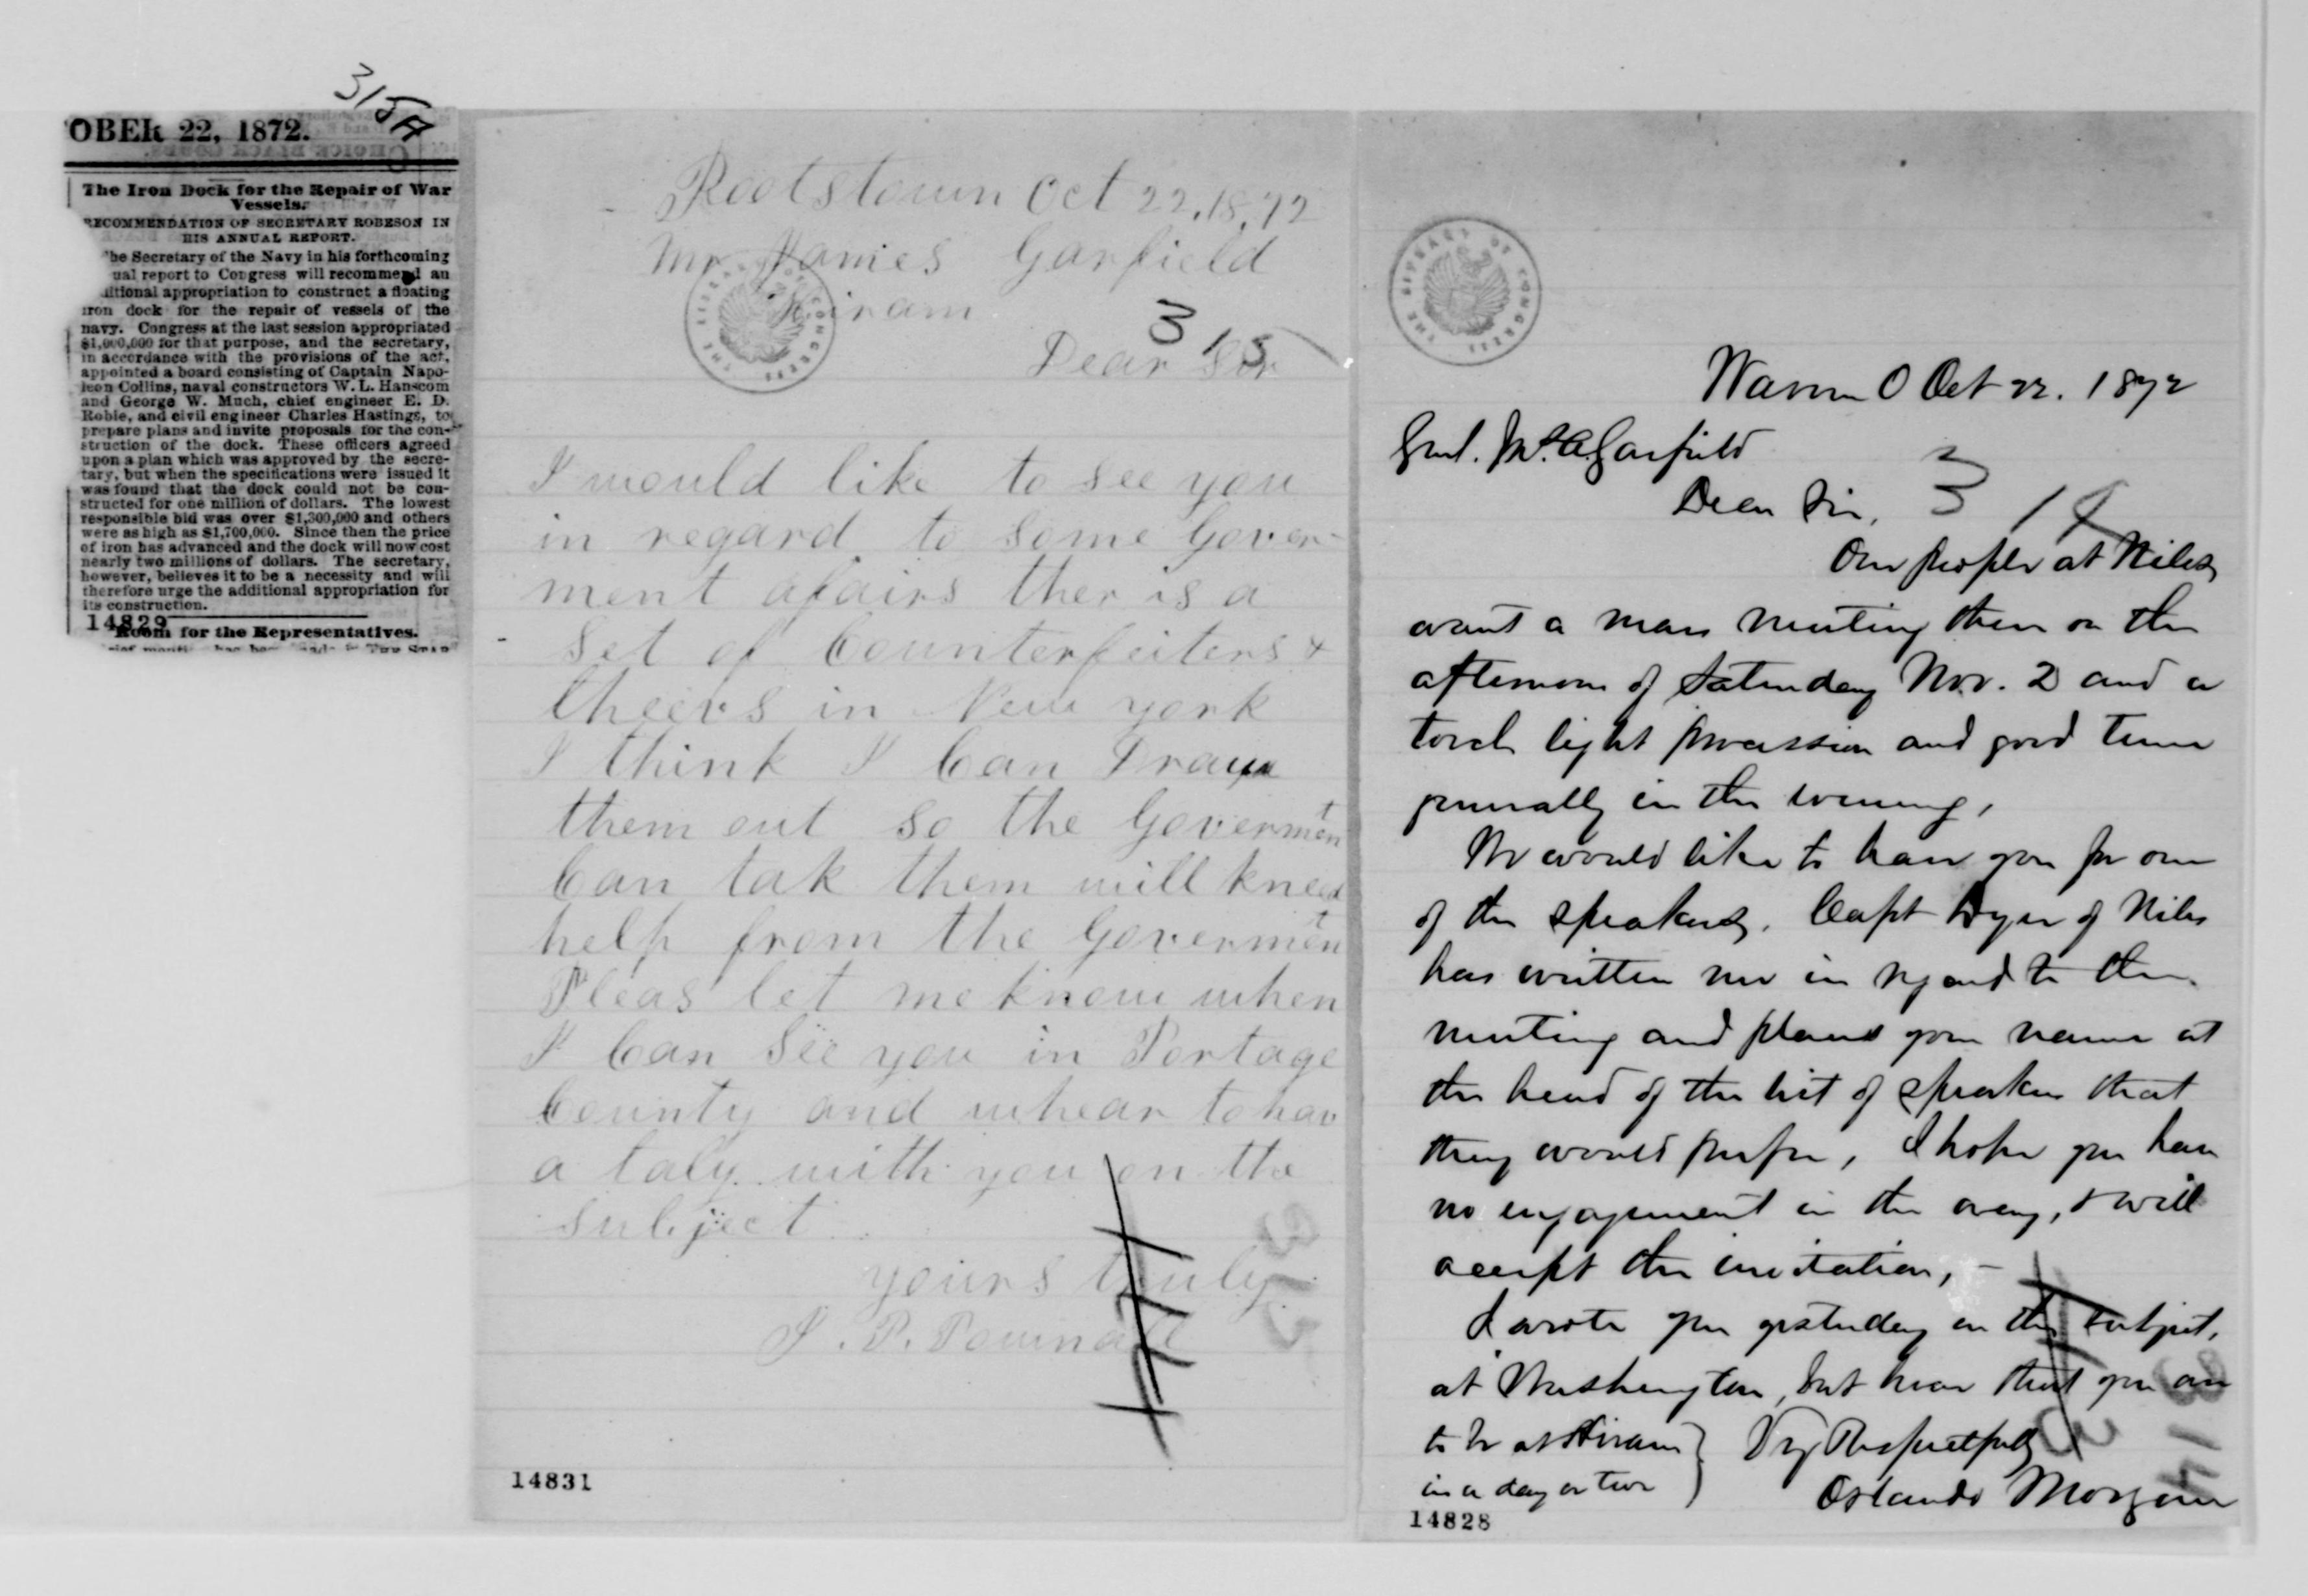 315A
OBER 22, 1872.
The Iron Dock for the Repair of War
Vessels.
RECOMMENDATION OF SECRETARY ROBESON IN
HIS ANNUAL REPORT.
he Secretary of the Navy in his forthcoming
ual report to Congress will recommend an
ditional appropriation to construct a floating
iron dock for the repair of vessels of the
navy. Congress at the last session appropriated
$1,000,000 for that purpose, and the secretary,
in accordance with the provisions of the act,
appointed a board consisting of Captain Napo-
leon Collins, naval constructors W. L. Hanscom
and George W. Much, chief engineer E. D.
Robie, and civil engineer Charles Hastings, to
prepare plans and invite proposals for the con-
struction of the dock. These officers agreed
upon a plan which was approved by the secre-
tary, but when the specifications were issued it
was found that the dock could not be con-
structed for one million of dollars. The lowest
responsible bid was over $1,300,000 and others
were as high as $1,700,000. Since then the price
of iron has advanced and the dock will now cost
nearly two millions of dollars. The secretary,
however, believes it to be a necessity and will
therefore urge the additional appropriation for
its construction.
14829
Room for the Representatives.
Rootstown Oct 22, 18,72
Mr James Garfield
Hiram
THE LIBRARY OF CONGRESS
315
Dear Sir
I would like to see you
in regard to some Gover-
ment afairs ther is a
Set of Counterfeiters &
theevs in New york
I think I Can Draw
them out so the Goverment
Can tak them will kneed
help from the Goverment
Pleas let me know when
I Can See you in Portage
County and whear to hav
a talk with you on the
subject
yours truly
J. P. Pownall
14831
THE LIBRARY OF CONGRESS
Warren O Oct 22. 1872
Genl. Jas. A. Garfield
Dear Sir,
314
Our people at Niles
want a mass meeting there on the
afternoon of Saturday Nov. 2 and a
torch light procession and good time
generally in the evening,
We would like to have you for one
of the speakers. Capt Dyer of Niles
has written me in regard to the
meeting and places your name at
the head of the list of speakers that
they would prefer, I hope you have
no engagement in the way, & will
accept the invitation, -
I wrote you yesterday on this subject,
at Washington, but hear that you are
to be at Hiram
in a day or two
Very Respectfully
Orlando Morgan
14828